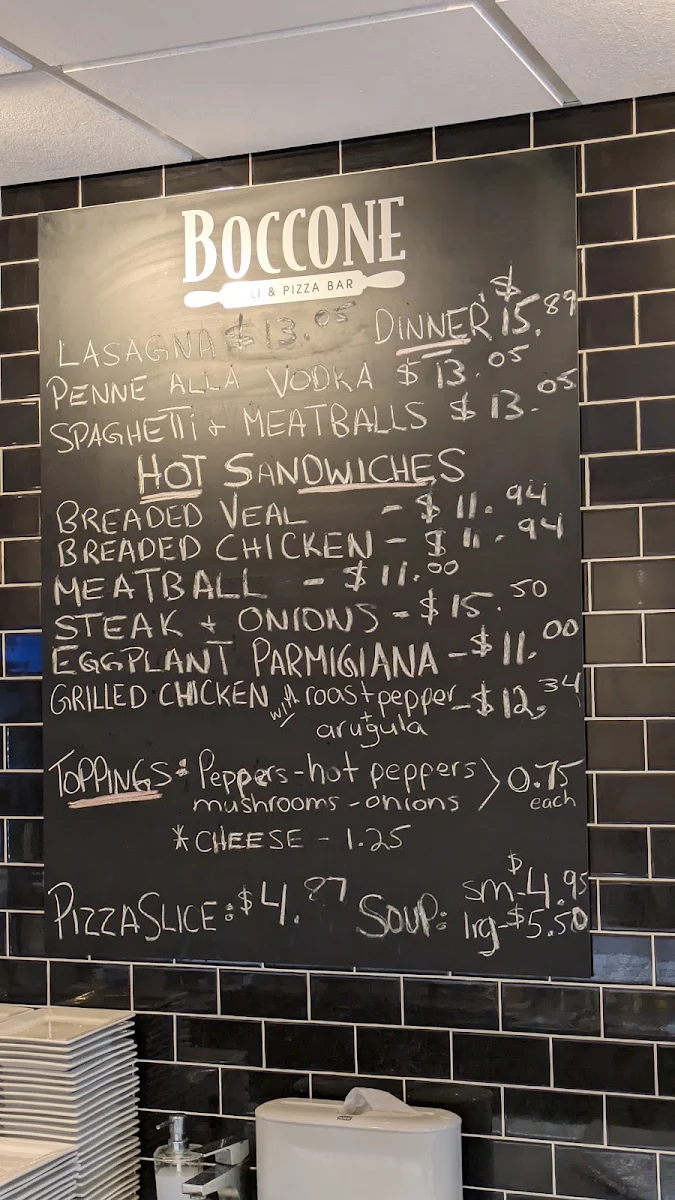 BOCCONE
& PIZZA BAR
LASAGNA $13.05 DINNER $15.89
PENNE ALLA VODKA $13.05
SPAGHETTi + MEATBALLS $13.05
HOT SANDWICHES
BREADED VEAL - $11.94
BREADED CHICKEN - $11.94
MEATBALL - $11.00
STEAK + ONIONS - $15.50
EGGPLANT PARMIGIANA - $11.00
GRILLED CHICKEN with roast pepper - $12.34
+ arugula
TOPPINGS: Peppers - hot peppers > 0.75
mushrooms - onions each
*CHEESE - 1.25
PIZZA SLICE: $4.87 SOUP: sm - $4.95
lrg - $5.50